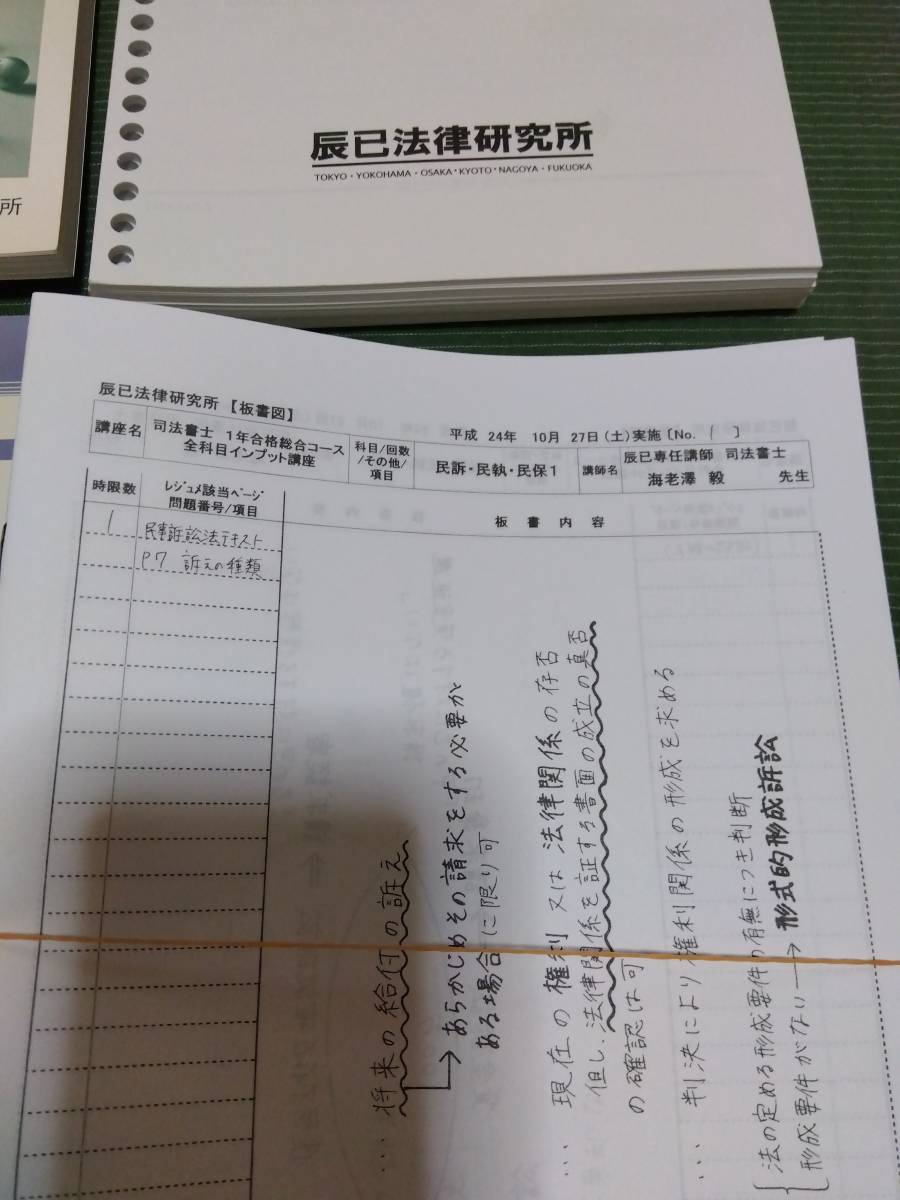 所
辰已法律研究所
TOKYO・YOKOHAMA・OSAKA・KYOTO・NAGOYA・FUKUOKA
辰已法律研究所 【板書図】
平成 24年 10月 27日(土)実施〔No. 1 〕
講座名
司法書士 1年合格総合コース
全科目インプット講座
科目/回数
/その他/
項目
民訴・民執・民保1
講師名
辰已専任講師 司法書士
海老澤 毅 先生
時限数
レジュメ該当ページ
問題番号/項目
板書内容
1
民事訴訟法テキスト
P7 訴えの種類
… 将来の給付の訴え
→ あらかじめその請求をする必要が
ある場合に限り可
… 現在の権利又は法律関係の存否
但し、法律関係を証する書面の成立の真否
の確認は可
… 判決により権利関係の形成を求める
法の定める形成要件の有無につき判断
形成要件がない → 形式的形成訴訟